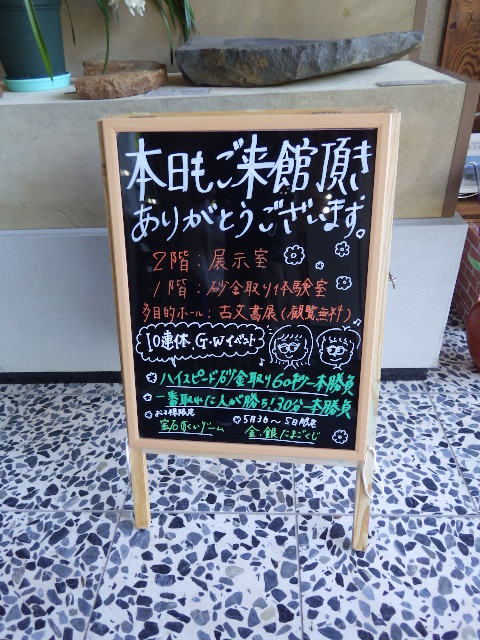 本日もご来館頂き
ありがとうございます。
2階：展示室
1階：砂金取り体験室
多目的ホール：古文書展(観覧無料)
10連休 G.Wイベント
ハイスピード砂金取り60秒一本勝負
一番取れた人が勝ち!30分一本勝負
お子様限定
宝石すくいゲーム
5月3日〜5日限定
金・銀たまごくじ